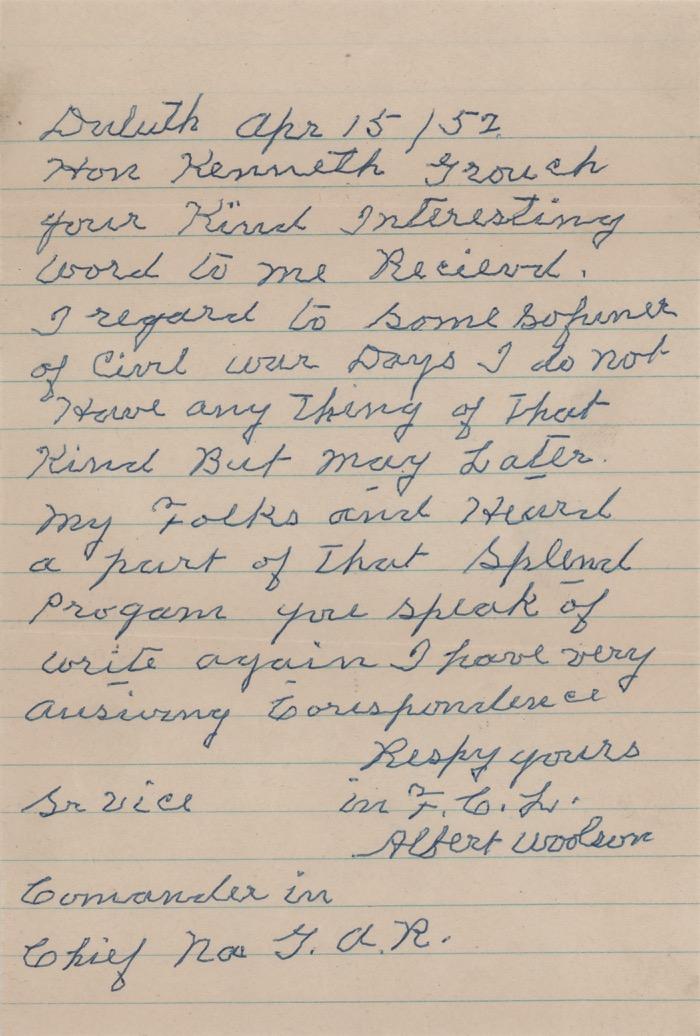 Duluth Apr 15/52
Hon Kenneth Grouch
your Kind Interesting
word to me Recievd.
I regard to some Sofuner
of Civil war Days I do not
Have any Thing of That
Kind But may Later.
My Folks and Heard
a part of That Splend
Progam you speak of
write again I have very
Corespondence
Respy yours
Sr Vice in F. C. L.
Albert Woolson
Comander in
Chief Na G. A. R.